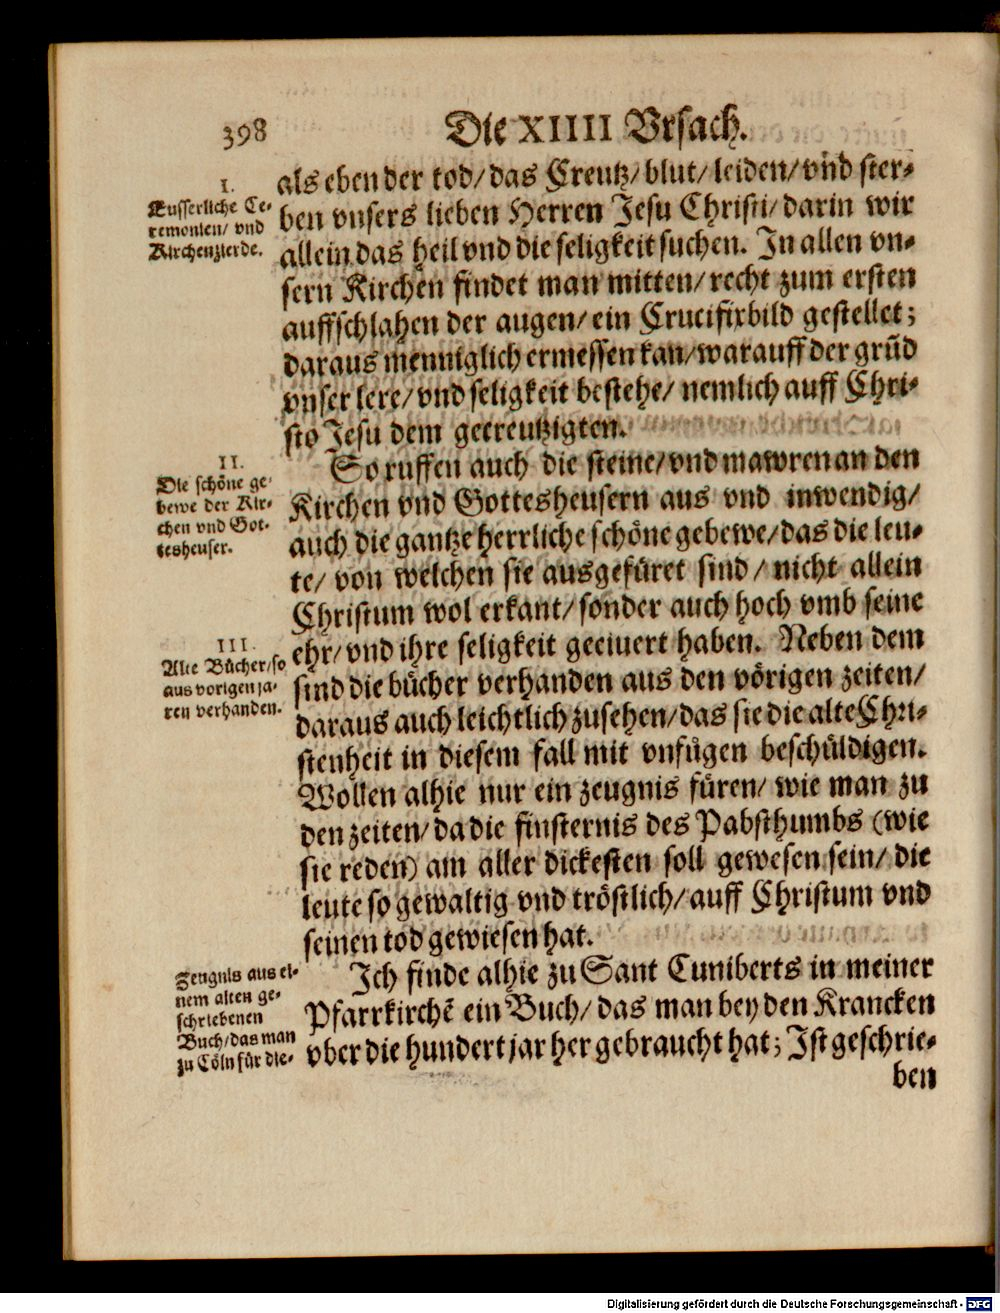 398
Die XIIII Vrsach.
I.
Eusserliche Ce-
remonien/ vnd
Kirchenzierde.
als eben der tod/ das Creutz/ blut/ leiden/ vñd ster-
ben vnsers lieben Herren Jesu Christi/ darin wir
allein das heil vnd die seligkeit suchen. In allen vn-
sern Kirchen findet man mitten/ recht zum ersten
auffschlahen der augen/ ein Crucifixbild gestellet;
daraus menniglich ermessen kan/ warauff der grũd
vnser lere/ vnd seligkeit bestehe/ nemlich auff Chri-
sto Jesu dem gecreutzigten.
II.
Die schöne ge-
bewe der Kir-
chen vnd Got-
tesheuser.
So ruffen auch die steine/ vnd mawren an den
Kirchen vnd Gottesheusern aus vnd inwendig/
auch die gantze herrliche schöne gebewe/ das die leu-
te/ von welchen sie ausgefüret sind/ nicht allein
Christum wol erkant/ sonder auch hoch vmb seine
ehr/ vnd ihre seligkeit geeiuert haben. Neben dem
III.
Alte Bücher/ so
aus vorigen ja-
ren verhanden.
sind die bücher verhanden aus den vörigen zeiten/
daraus auch leichtlich zusehen/ das sie die alte Chri-
stenheit in diesem fall mit vnfügen beschüldigen.
Wollen alhie nur ein zeugnis füren/ wie man zu
den zeiten/ da die finsternis des Pabsthumbs (wie
sie reden) am aller dickesten soll gewesen sein/ die
leute so gewaltig vnd tröstlich/ auff Christum vnd
seinen tod gewiesen hat.
Zeugnis aus ei-
nem alten ge-
schriebenen
Buch/ das man
zu Cöln für die-
Ich finde alhie zu Sant Cuniberts in meiner
Pfarrkirchẽ ein Buch/ das man bey den Krancken
vber die hundert jar her gebraucht hat; Ist geschrie-
ben
Digitalisierung gefördert durch die Deutsche Forschungsgemeinschaft - DFG